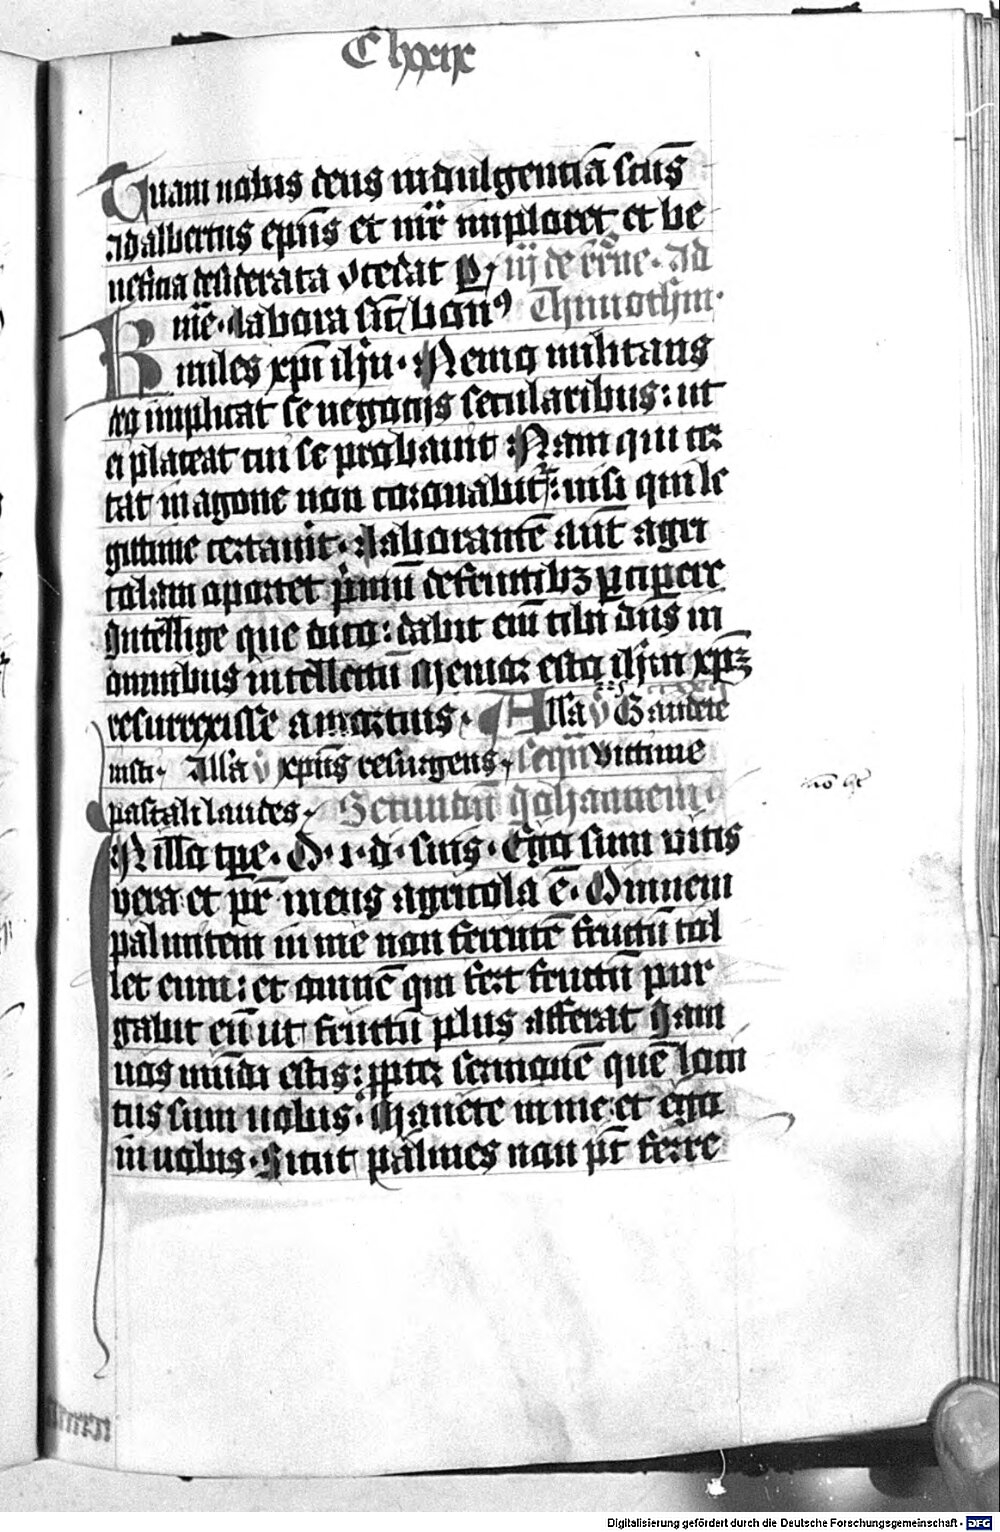 C lxxix
Tuam nobis deus indulgenciā scūs
adalbertus ep̄us et m̄r imploret et be
nefica desiderata ꝯcedat ꝑ iij de br̄ue · Ad
me · labora sic̄ bonꝰ Thimothm̄ ·
miles xp̄i ih̄u · Nemo militans
deo implicat se negocijs secularibus : ut
ei placeat cui se probauit Nam qui cer
tat in agone non coronabit̄ : nisi qui le
gittime certauit · Laborantē aūt agri
colam oportet p̄mū de fructibꝫ ꝑcipere
Intellige que dico : dabit em̄ tibi dn̄s in
omnibus intellectū Memor esto ih̄m xp̄m
resurrexisse a mortuis · Alla ℣ Gaudete
iusti · Alla ℣ xp̄us resurgens · seqn̄ victime
paschali laudes · Secundū Johannem ·
nō h̄t
N illo tꝑe · D · i · d · suis · Ego sum vitis
vera et pr̄ meus agricola ē · Omnem
palmitem in me non ferentē fructū tol
let eum : et omnē qui fert fructū pur
gabit eū ut fructū plus afferat Jam
uos mūdi estis : ꝓpter sermonē quē locu
tus sum uobis · Manete in me et ego
in uobis · Sicut palmes non pt̄ ferre
Digitalisierung gefördert durch die Deutsche Forschungsgemeinschaft - DFG